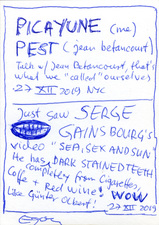 PICAYUNE (me)
PEST (jean betancourt)
Jean Betancourt, that's
what we "called" ourselves
27 XII 2019 NYC
Just saw SERGE
GAINSBOURG's
video "SEA, SEX AND SUN"
He has DARK STAINED TEETH
completely from Cigarettes,
Coffe + Red Wine!
Like Günter Ocbert! WOW
27 XII 2019